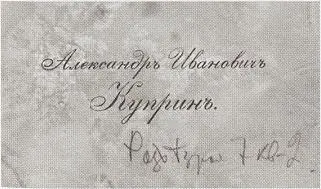 Александръ Ивановичъ
Купринъ.
7 кв. 2